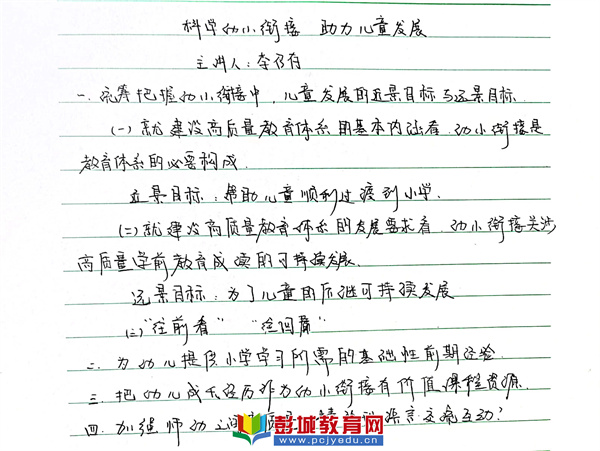 科学幼小衔接 助力儿童发展
主讲人:李召存
一.统筹把握幼小衔接中,儿童发展的近景目标与远景目标
(一)就建设高质量教育体系的基本内涵看,幼小衔接是
教育体系的必要构成.
近景目标:帮助儿童顺利过渡到小学.
(二)就建设高质量教育体系的发展要求看,幼小衔接关涉
高质量学前教育成效的可持续发展.
远景目标:为了儿童的后继可持续发展
(三)"往前看" "往回看"
二.为幼儿提供小学学习所需的基础性前期经验.
三.把幼儿成长经历作为幼小衔接有价值课程资源.
四.加强师幼之间 交流互动?
彭城教育网
www.pcjyedu.cn